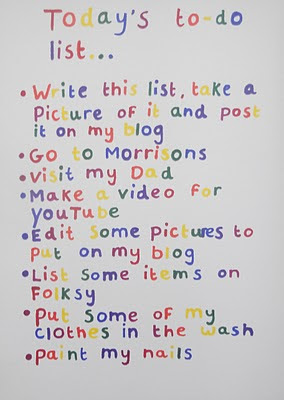 Today's to-do
list...
• Write this list, take a
Picture of it and post
it on my blog
• Go to Morrisons
• visit my Dad
• Make a video for
YouTube
• Edit some pictures to
put on my blog
• List some items on
Folksy
• Put some of my
clothes in the wash
• paint my nails